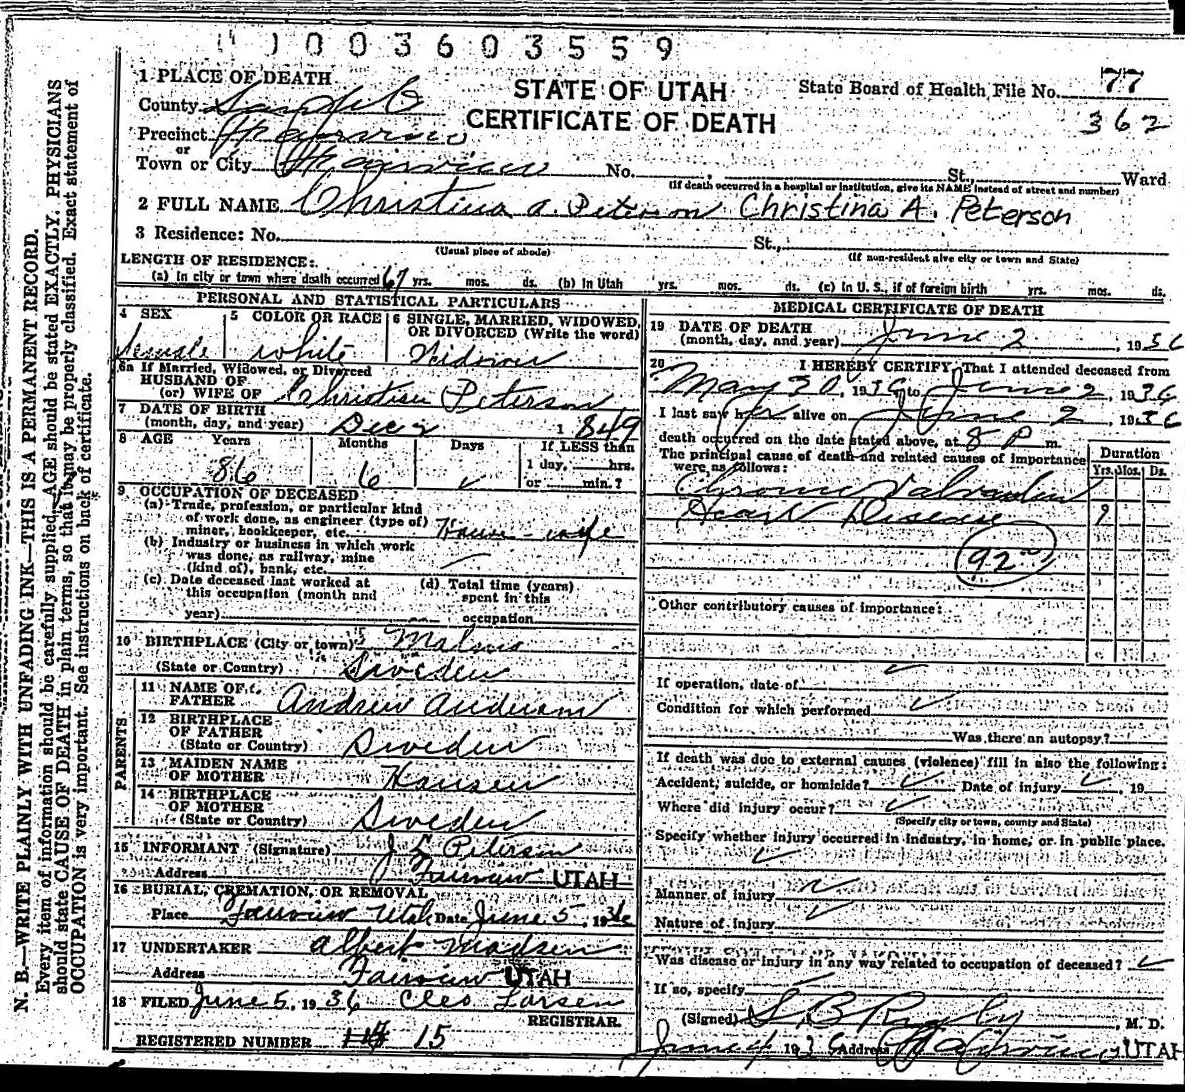 1003603559
1 PLACE OF DEATH
STATE OF UTAH
CERTIFICATE OF DEATH
State Board of Health File No. 77
362
County Sanpete
Precinct Fairview
or
Town or City Fairview No. , St., Ward
(If death occurred in a hospital or institution, give its NAME instead of street and number)
2 FULL NAME Christina A. Peterson Christina A. Peterson
3 Residence: No. St.,
(Usual place of abode) (If non-resident give city or town and State)
LENGTH OF RESIDENCE:
(a) In city or town where death occurred 67 yrs. mos. ds. (b) In Utah yrs. mos. ds. (c) In U. S., if of foreign birth yrs. mos. ds.
PERSONAL AND STATISTICAL PARTICULARS
4 SEX 5 COLOR OR RACE 6 SINGLE, MARRIED, WIDOWED, OR DIVORCED (Write the word)
Female White Widow
6a If Married, Widowed, or Divorced
HUSBAND OF
(or) WIFE OF Christian Peterson
7 DATE OF BIRTH
(month, day, and year) Dec 2 1849
8 AGE Years Months Days If LESS than
1 day, hrs.
86 6 ✓ or min.?
9 OCCUPATION OF DECEASED:
(a) Trade, profession, or particular kind
of work done, as engineer (type of)
miner, bookkeeper, etc. House-wife
(b) Industry or business in which work
was done, as railway, mine
(kind of), bank, etc. ✓
(c) Date deceased last worked at
this occupation (month and
year)
(d) Total time (years)
spent in this
occupation
10 BIRTHPLACE (City or town)
(State or Country) Sweden
11 NAME OF
FATHER Andrew Anderson
12 BIRTHPLACE
OF FATHER
(State or Country) Sweden
13 MAIDEN NAME
OF MOTHER Hansen
14 BIRTHPLACE
OF MOTHER
(State or Country) Sweden
PARENTS
15 INFORMANT (Signature) Peterson
Address Fairview UTAH
16 BURIAL, CREMATION, OR REMOVAL
Place Fairview Utah Date June 5, 1936
17 UNDERTAKER Albert Madsen
Address Fairview UTAH
18 FILED June 5, 1936 Cleo Larsen
REGISTRAR.
REGISTERED NUMBER 15
MEDICAL CERTIFICATE OF DEATH
19 DATE OF DEATH
(month, day, and year) June 2, 1936
20 I HEREBY CERTIFY, That I attended deceased from
May 30, 1936, to June 2, 1936
I last saw her alive on June 2, 1936
death occurred on the date stated above, at 8 P m.
The principal cause of death and related causes of importance
were as follows:
Duration
Yrs. Mos. Ds.
Chronic Valvular
Heart Disease ?
92
Other contributory causes of importance:
If operation, date of ✓
Condition for which performed ✓
Was there an autopsy?
If death was due to external causes (violence) fill in also the following:
Accident, suicide, or homicide? ✓ Date of injury ✓, 19
Where did injury occur? ✓
(Specify city or town, county and State)
Specify whether injury occurred in industry, in home, or in public place.
✓
Manner of injury ✓
Nature of injury ✓
Was disease or injury in any way related to occupation of deceased? ✓
If so, specify
(Signed) S. B. Rigby, M. D.
June 4, 1936 Address Fairview UTAH
N. B.—WRITE PLAINLY WITH UNFADING INK—THIS IS A PERMANENT RECORD.
Every item of information should be carefully supplied. AGE should be stated EXACTLY. PHYSICIANS
should state CAUSE OF DEATH in plain terms, so that it may be properly classified. Exact statement of
OCCUPATION is very important. See instructions on back of certificate.